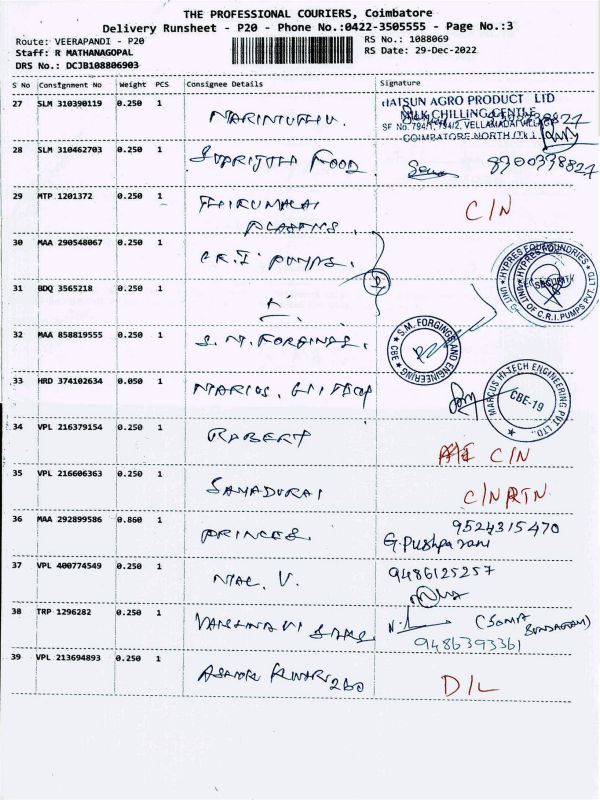 THE PROFESSIONAL COURIERS, Coimbatore
Delivery Runsheet - P20 - Phone No.:0422-3505555 - Page No.:3
Route: VEERAPANDI - P20
RS No.: 1088069
Staff: R MATHANAGOPAL
RS Date: 29-Dec-2022
DRS No.: DCJB108806903
S No Consignment No Weight PCS Consignee Details Signature
27 SLM 310390119 0.250 1
HATSUN AGRO PRODUCT LTD
MILK CHILLING CENTRE
SF No. 794/1, 794/2, VELLAMADAI VILLAGE
COIMBATORE NORTH (TK)
28 SLM 310462703 0.250 1 Food 8900398827
29 MTP 1201372 0.250 1 THIRUMALAI C/N
30 MAA 290548067 0.250 1 C.R.I PUMPS.
HYPRES FOUNDRIES
UNIT OF C.R.I. PUMPS PVT. LTD
SECURITY
31 BDQ 3565218 0.250 1
32 MAA 858819555 0.250 1 S.M. FORGINGS.
S.M. FORGINGS AND ENGINEERING
CBE
33 HRD 374102634 0.050 1
MARCUS HI-TECH ENGINEERING PVT LTD.,
CBE-19
34 VPL 216379154 0.250 1 ROBERT C/N
35 VPL 216606363 0.250 1 SAMADURAI C/N RTN
36 MAA 292899586 0.860 1 PRINCES. 9524315470
G. Pushparani
37 VPL 400774549 0.250 1 MAC. V. 9486125257
38 TRP 1296282 0.250 1 (SOMA SUNDARAM)
9486393361
39 VPL 213694893 0.250 1 ASHOK KUMAR 260 D/L